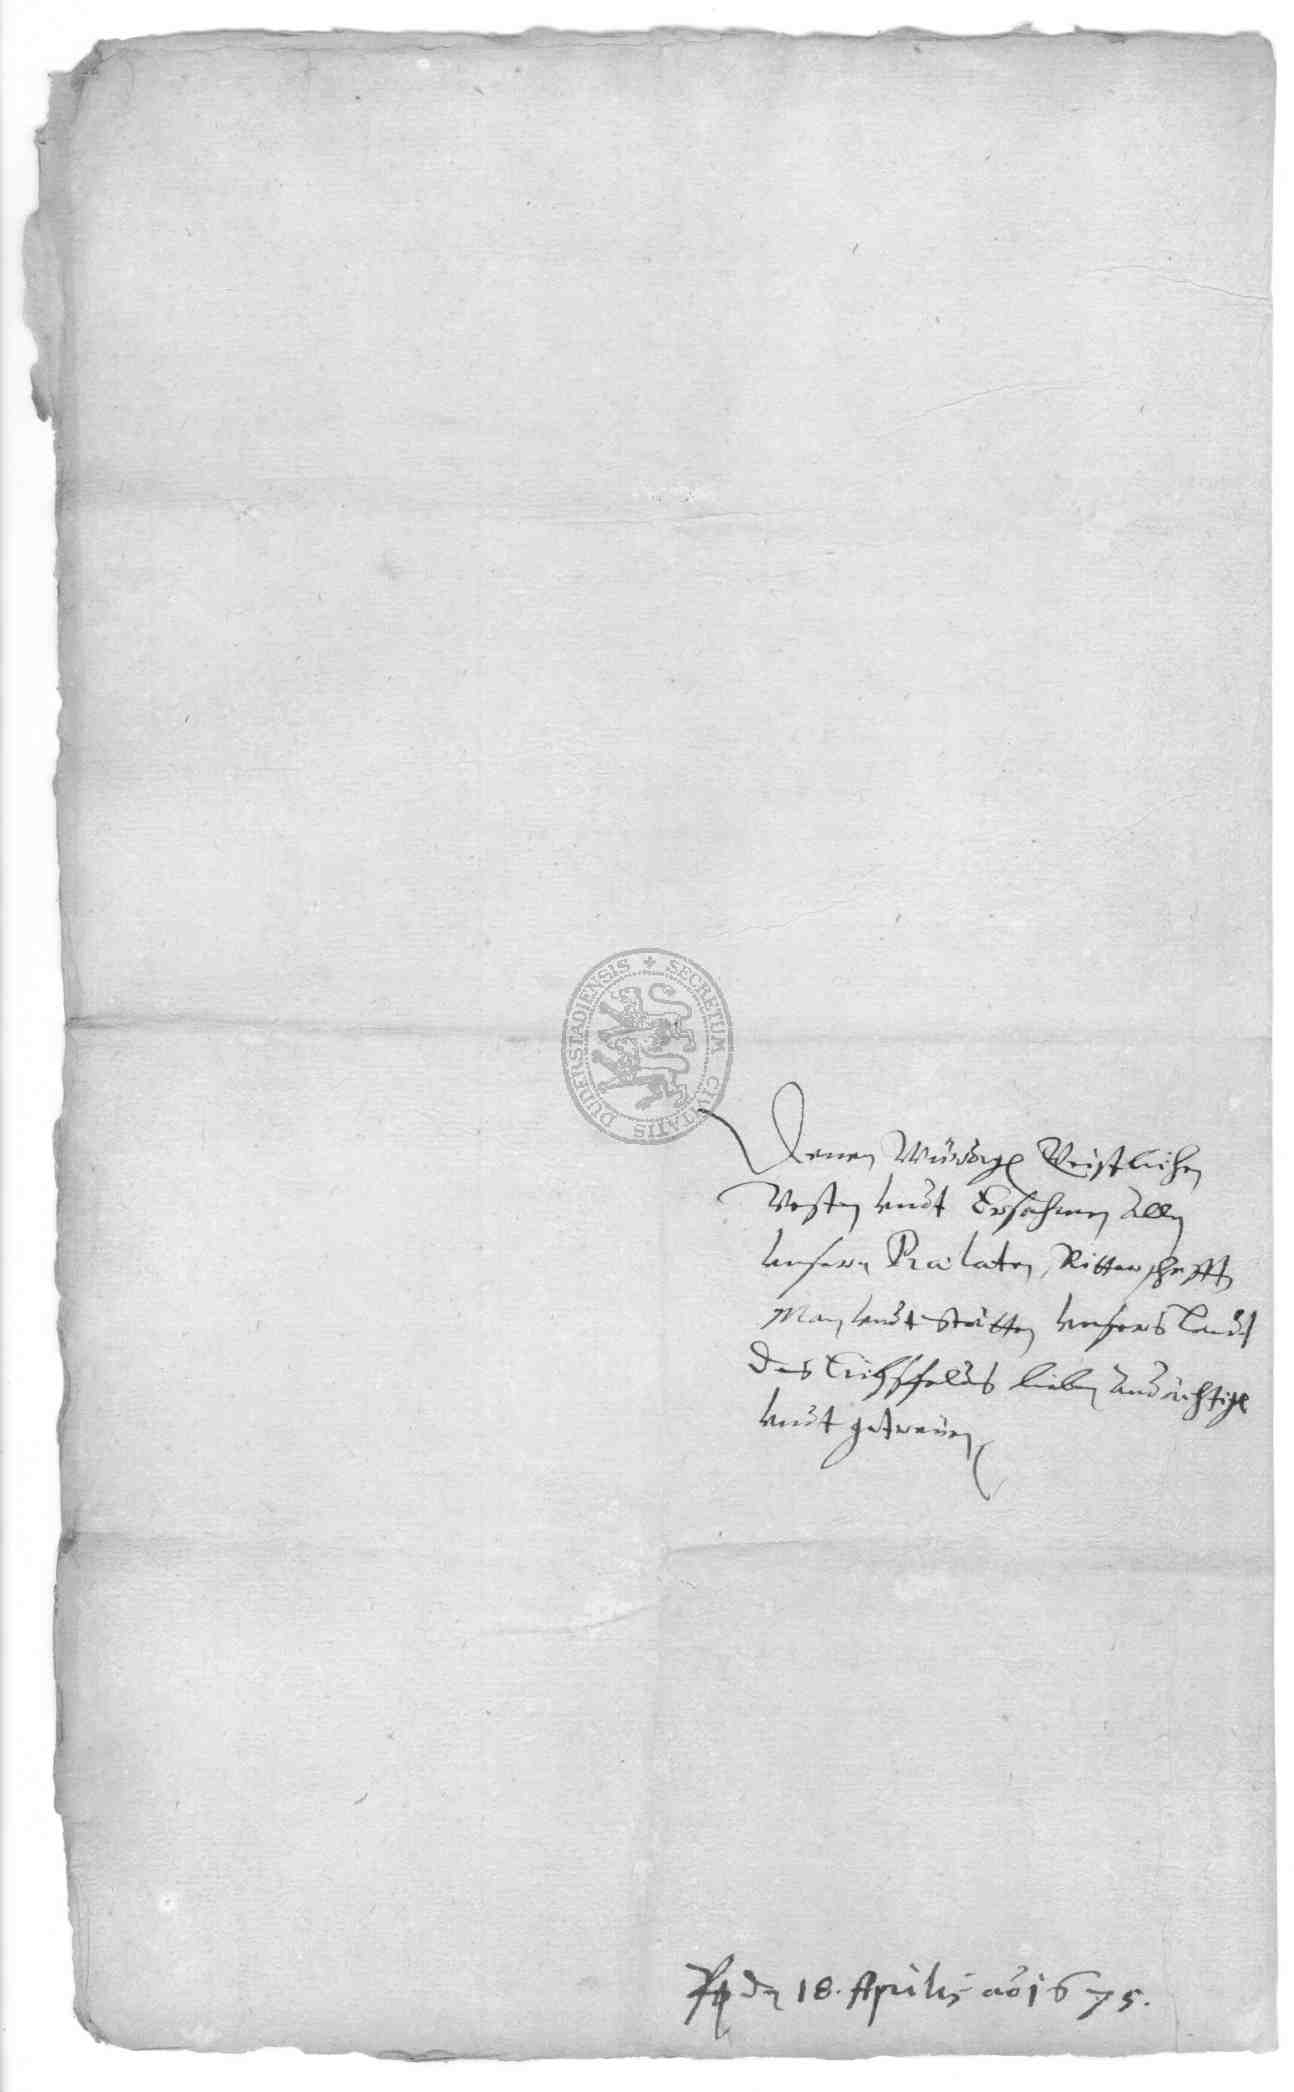 SECRETUM CIVITATIS DUDERSTADIENSIS
Denen Würdigen Geistlichen
Vesten undt Ersahmen allen
unsern Prælaten, Ritterschafft
undt Stätten unsers Landts
des Eichsfelds lieben andächtigen
undt getrewen
den 18. Aprilis ao 1675.